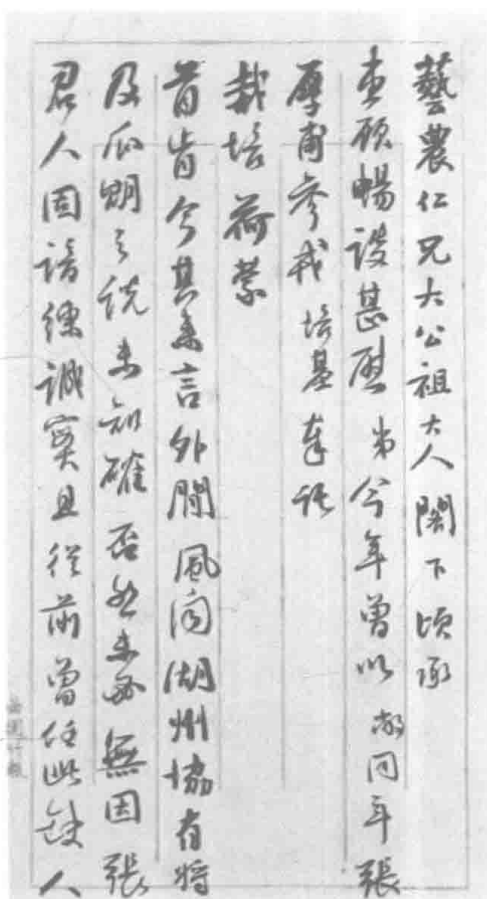 藝農仁兄大公祖大人閣下頃承
枉顧暢談甚慰弟今年曾以敝同年張
厚甫參戎培基奉託
栽培荷蒙
首肯今其來言外間風聞湖州協有將
及瓜期之說未知確否然未必無因張
君人固諳練誠實且從前曾任此缺人